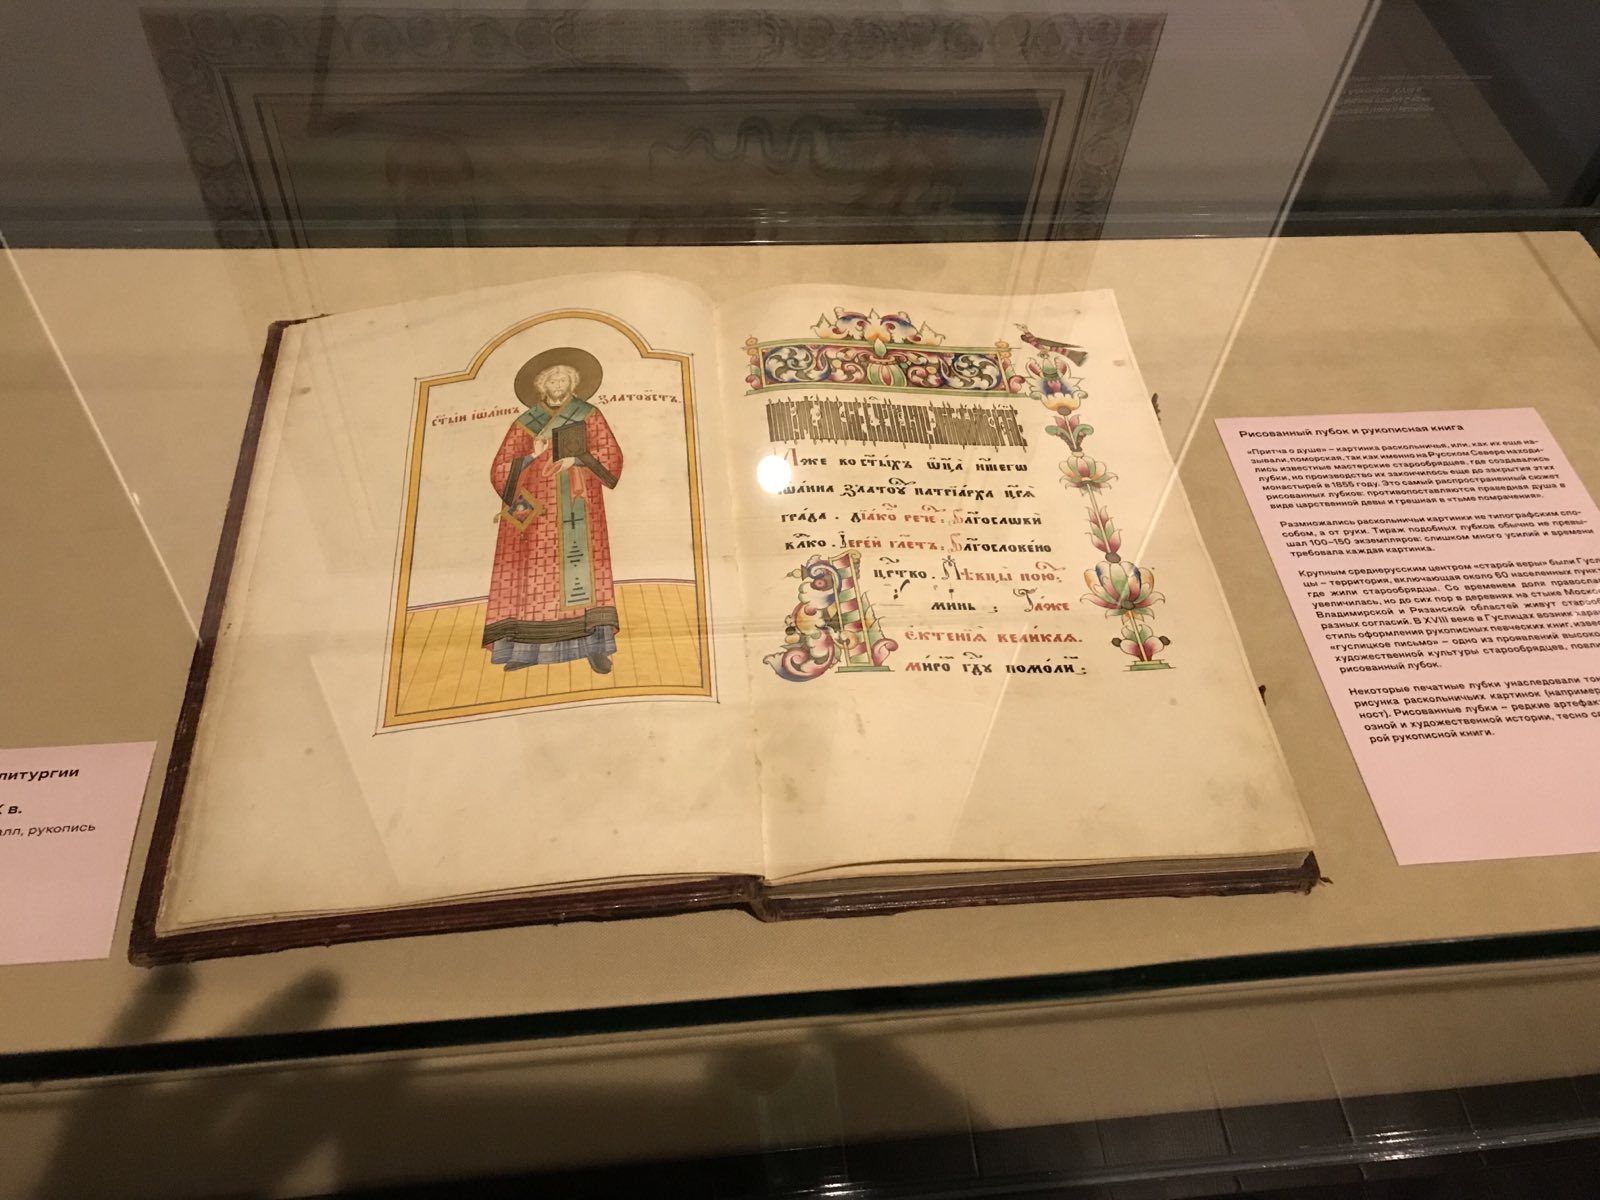 литургии
в.
рукопись
ст҃ы́й іѡа́ннъ
златоу́стъ.
И҆́же во ст҃ы́хъ ѻ҆ц҃а̀ на́шегѡ
і҆ѡа́нна златоꙋ патрїа́рха цр҃ѧ
гра́да. дїа́ко рече: Благослови̂
влⷣко. І҆ере́й гл҃етъ: Благослове́но
црⷭ҇тво. Пѣвцы̀ пою:
минь: Та́же
є҆ктенїѧ̀ вели́каѧ.
ми́ро гдⷭ҇ꙋ помо́ли:
Рисованный лубок и рукописная книга
«Притча о душе» – картинка раскольничья, или, как их еще на-
зывали, поморская, так как именно на Русском Севере находи-
лись известные мастерские старообрядцев, где создавались
лубки, но производство их закончилось еще до закрытия этих
монастырей в 1855 году. Это самый распространенный сюжет
рисованных лубков: противопоставляются праведная душа в
виде царственной девы и грешная в «тьме помрачения».
Размножались раскольничьи картинки не типографским спо-
собом, а от руки. Тираж подобных лубков обычно не превы-
шал 100–150 экземпляров: слишком много усилий и времени
требовала каждая картинка.
Крупным среднерусским центром «старой веры» были Гусл
цы – территория, включающая около 60 населенных пунк
где жили старообрядцы. Со временем доля православ
увеличилась, но до сих пор в деревнях на стыке Моско
Владимирской и Рязанской областей живут старооб
разных согласий. В XVIII веке в Гуслицах возник хара
стиль оформления рукописных певческих книг, извес
«гуслицкое письмо» – одно из проявлений высоко
художественной культуры старообрядцев, повли
рисованный лубок.
Некоторые печатные лубки унаследовали тон
рисунка раскольничьих картинок (например
ност). Рисованные лубки – редкие артефак
озной и художественной истории, тесно с
рой рукописной книги.